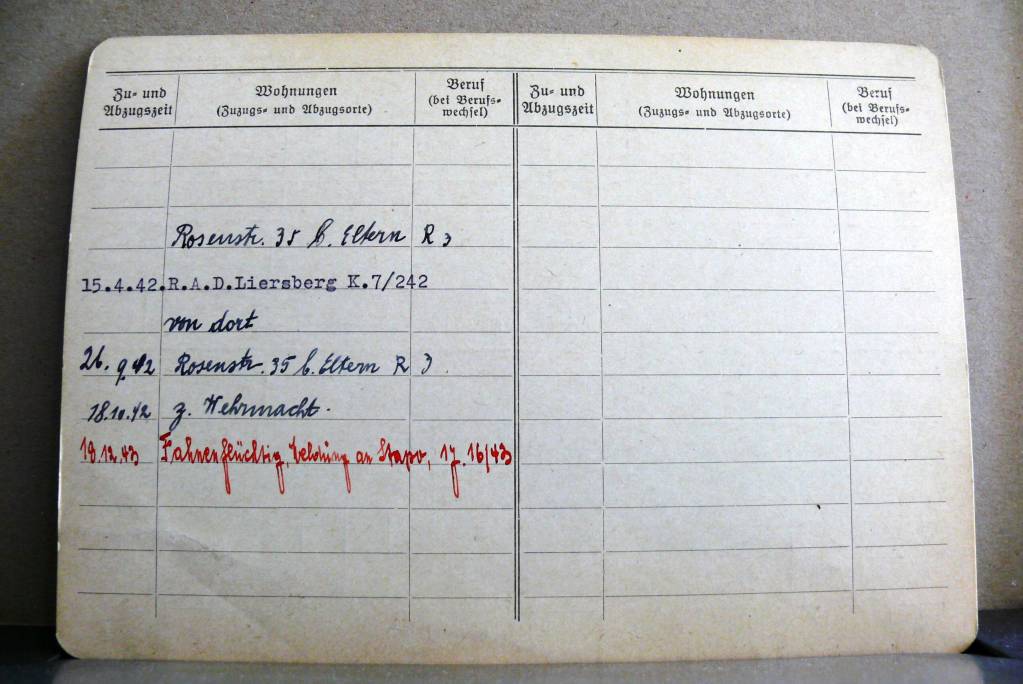 Zu- und Abzugszeit
Wohnungen
(Zuzugs- und Abzugsorte)
Beruf
(bei Berufs-
wechsel)
Zu- und Abzugszeit
Wohnungen
(Zuzugs- und Abzugsorte)
Beruf
(bei Berufs-
wechsel)
Rosenstr. 35 b. Eltern R 3
15.4.42. R.A.D. Liersberg K.7/242
von dort
26.9.42 Rosenstr. 35 b. Eltern R 3
18.10.42 z. Wehrmacht.
18.12.43 Fahnenflüchtig, an Stapo, 17.16/43